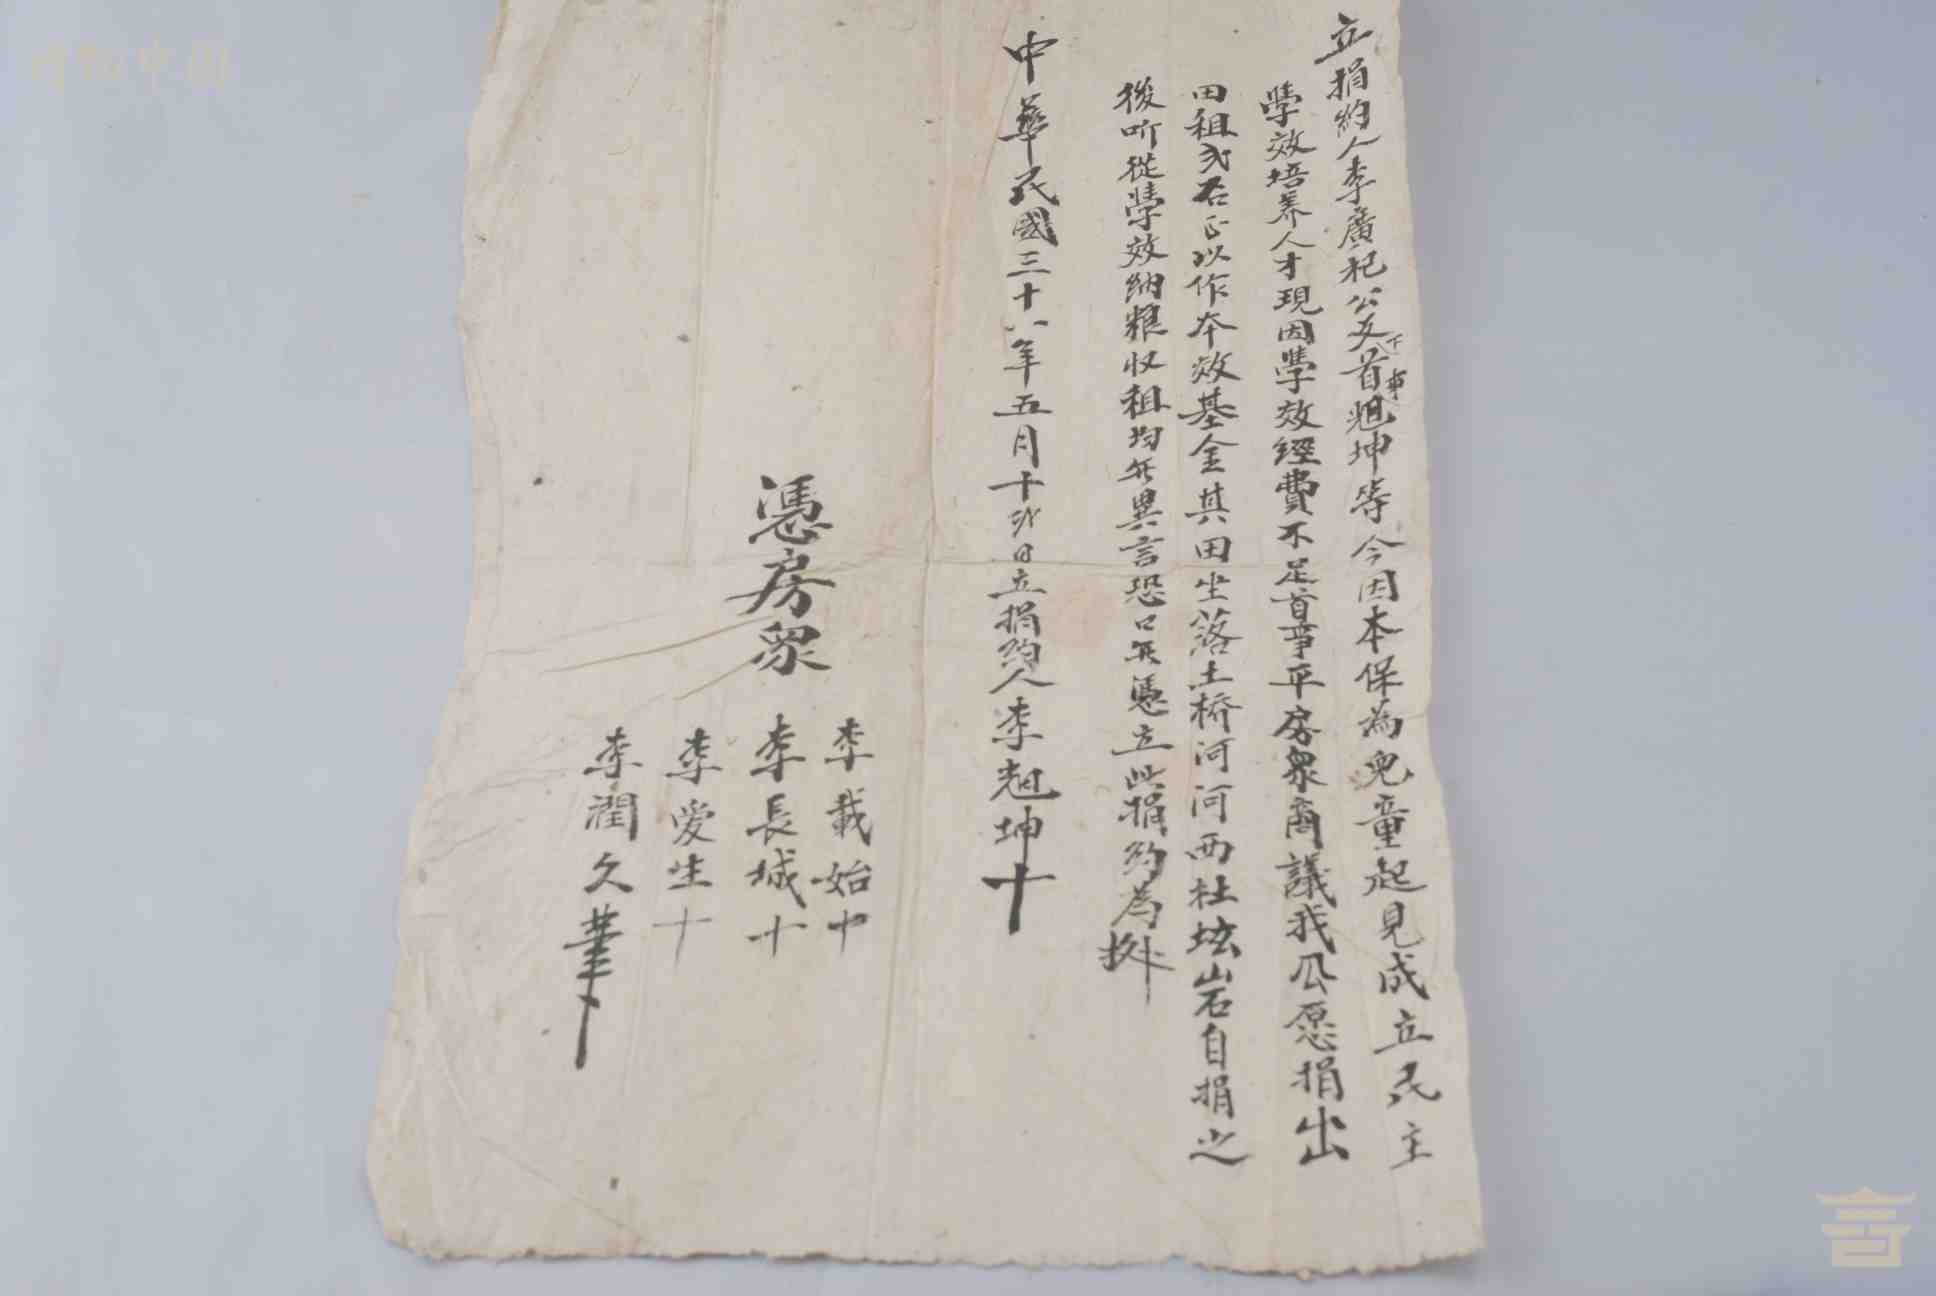 立捐約人李廣杞公支下首事魁坤等今因本保為兒童起見成立民主
學效培養人才現因學效經費不足首事平房眾商議我公愿捐出
田租弍石正以作本效基金其田坐落土桥河河西杜坟岩自捐之
後听從學效納粮收租均無異言恐口無憑立此捐約為據
中華民國三十八年五月十弍日立捐約人李魁坤十
憑房眾
李載始十
李長城十
李愛生十
李潤久筆